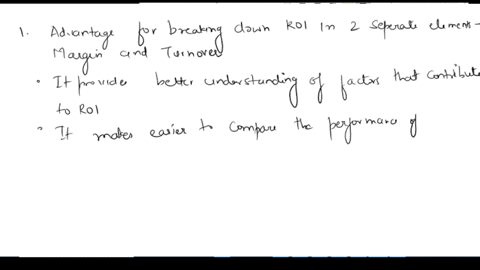 1. Advantage for breaking down ROI in 2 seperate elements -
Margin and Turnover
• It provide better understanding of factors that contribute
to ROI
• It makes easier to compare the performance of